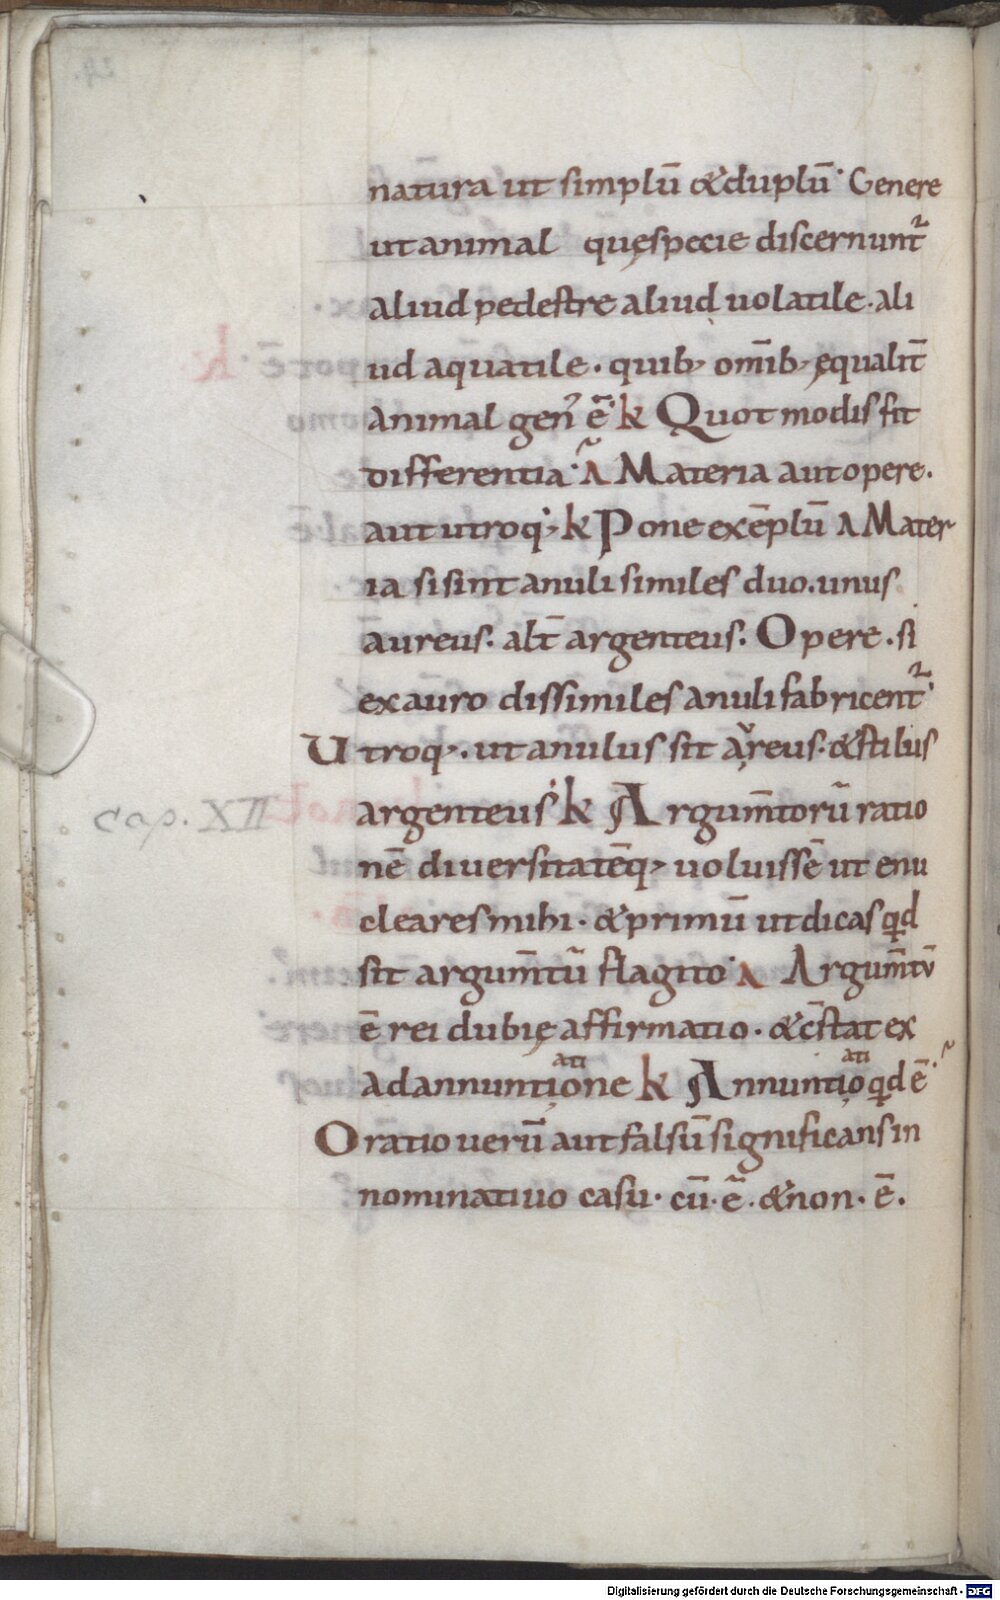 natura ut simplū &duplū· Genere
ut animal quęspecie discernunt᷑
aliud pedestre aliud uolatile· ali
ud aquatile· quib; om̄ib; ęqualit̄
animal geń ē· k Quot modis fit
differentia· Λ Materia aut opere·
aut utroq; k Pone exēplū Λ Mater
ia si sint anuli similes duo· unus
aureus· alt̄ argenteus· Opere· si
ex auro dissimiles anuli fabricent᷑·
Utroq;· ut anulus sit aureus· &stilus
argenteus· k Argum̄torū ratio
nē diuersitatēq; uoluissē ut enu
cleares mihi· &primū ut dicas qd
sit argum̄tū flagito· Λ Argum̄tū
ē rei dubię affirmatio· &c̄stat ex
ati ati
adannuntione k Annuntio qd ē·
Oratio uerū aut falsū significans in
nominatiuo casu· cū· ē· &non· ē·
cap. XII
Digitalisierung gefördert durch die Deutsche Forschungsgemeinschaft - DFG